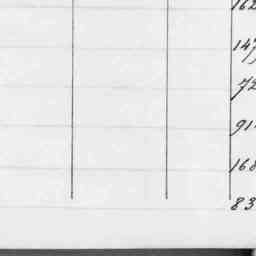 162
147
72
91
168
83